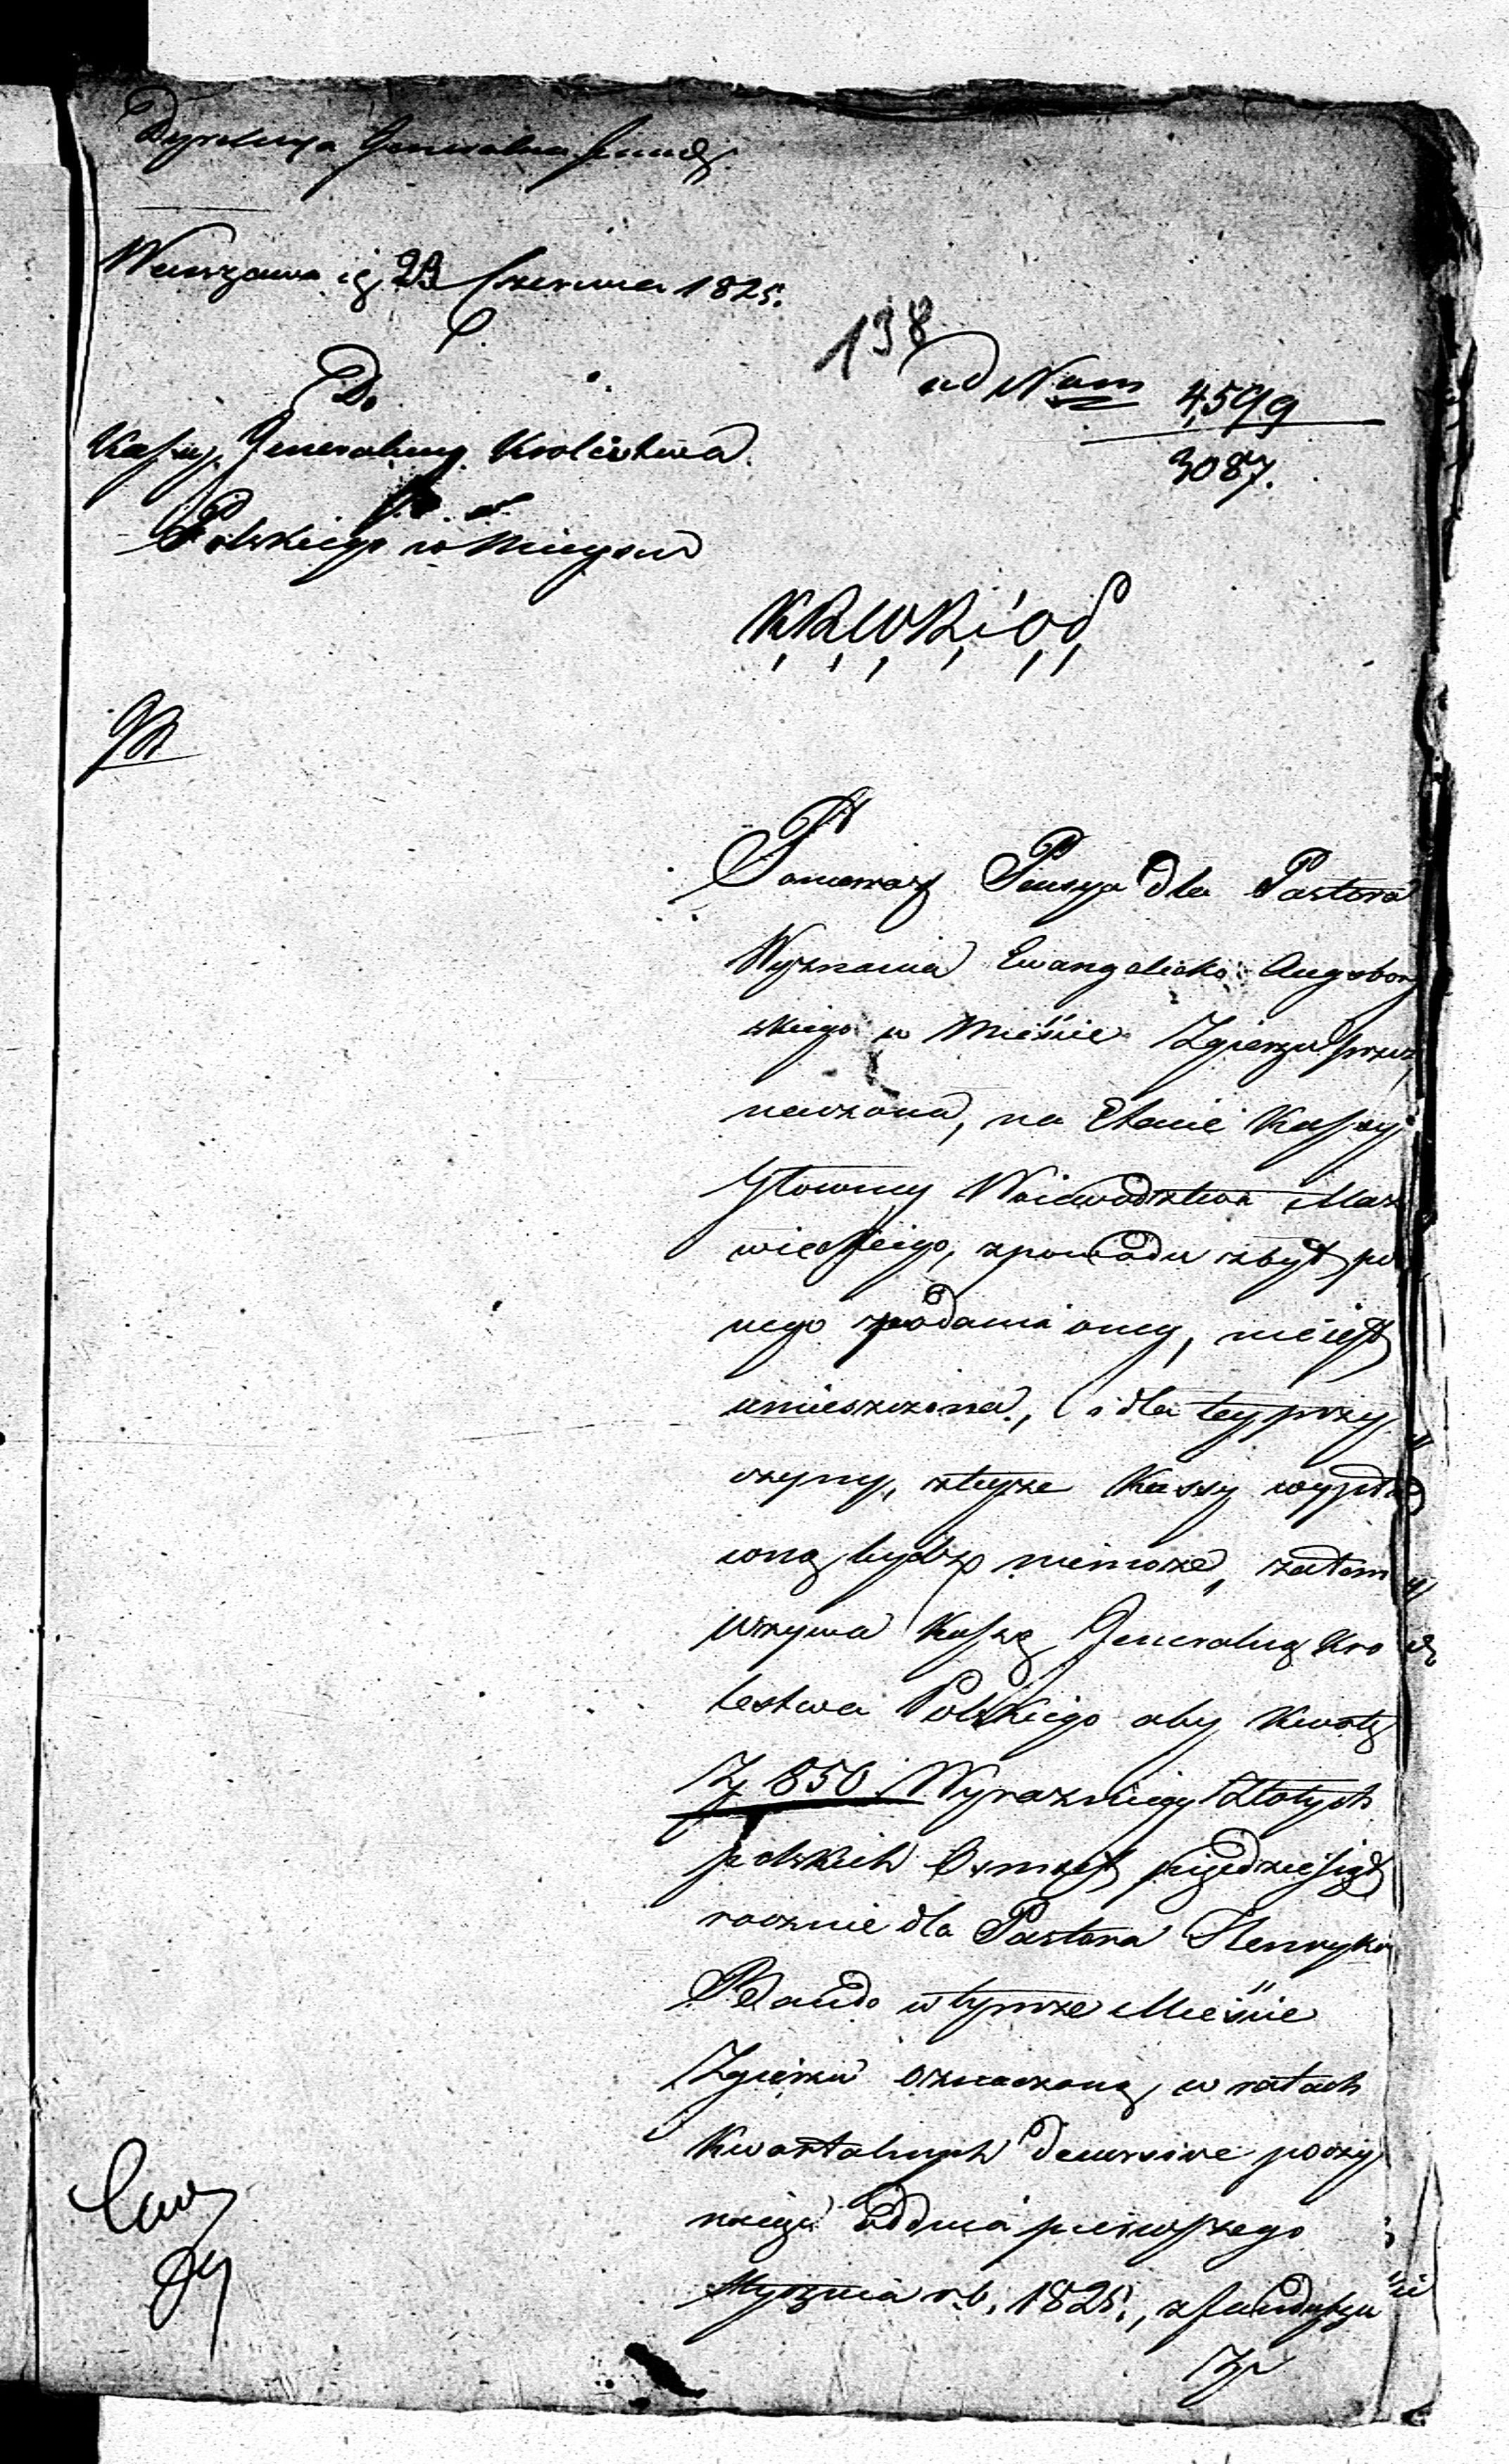 Dyrekcya Generalna
Warszawa d. 23 Czerwca 1825.
138
ad Num 4,599
3087.
Do
Kassy Generalney Krolestwa
Polskiego w Mieyscu
K. R. W. R. i O. P.
Ponieważ Pensya dla Pastora
Wyznania Ewangelicko Augsbor
skiego w Mieście Zgierzu przez
naczona, na Etacie Kassy
Głowney Woiewodztwa Mazo
wieckiego, zpowodu zbyt
nego podania oney, nieiest
umieszczona, i dla tey przy
czyny, zteyże Kassy wypła
coną bydz niemoże, zatem
wzywa Kassę Generalną Kro
lestwa Polskiego aby kwotę
Zł 850 Wyrazniey Złotych
polskich Osmset pięćdziesiąt
rocznie dla Pastora Henryka
Bando w tymże Mieście
Zgierzu oznaczoną, w ratach
Kwartalnych decursive poczy
naiąc oddnia pierwszego
Stycznia r. b. 1825., z funduszu